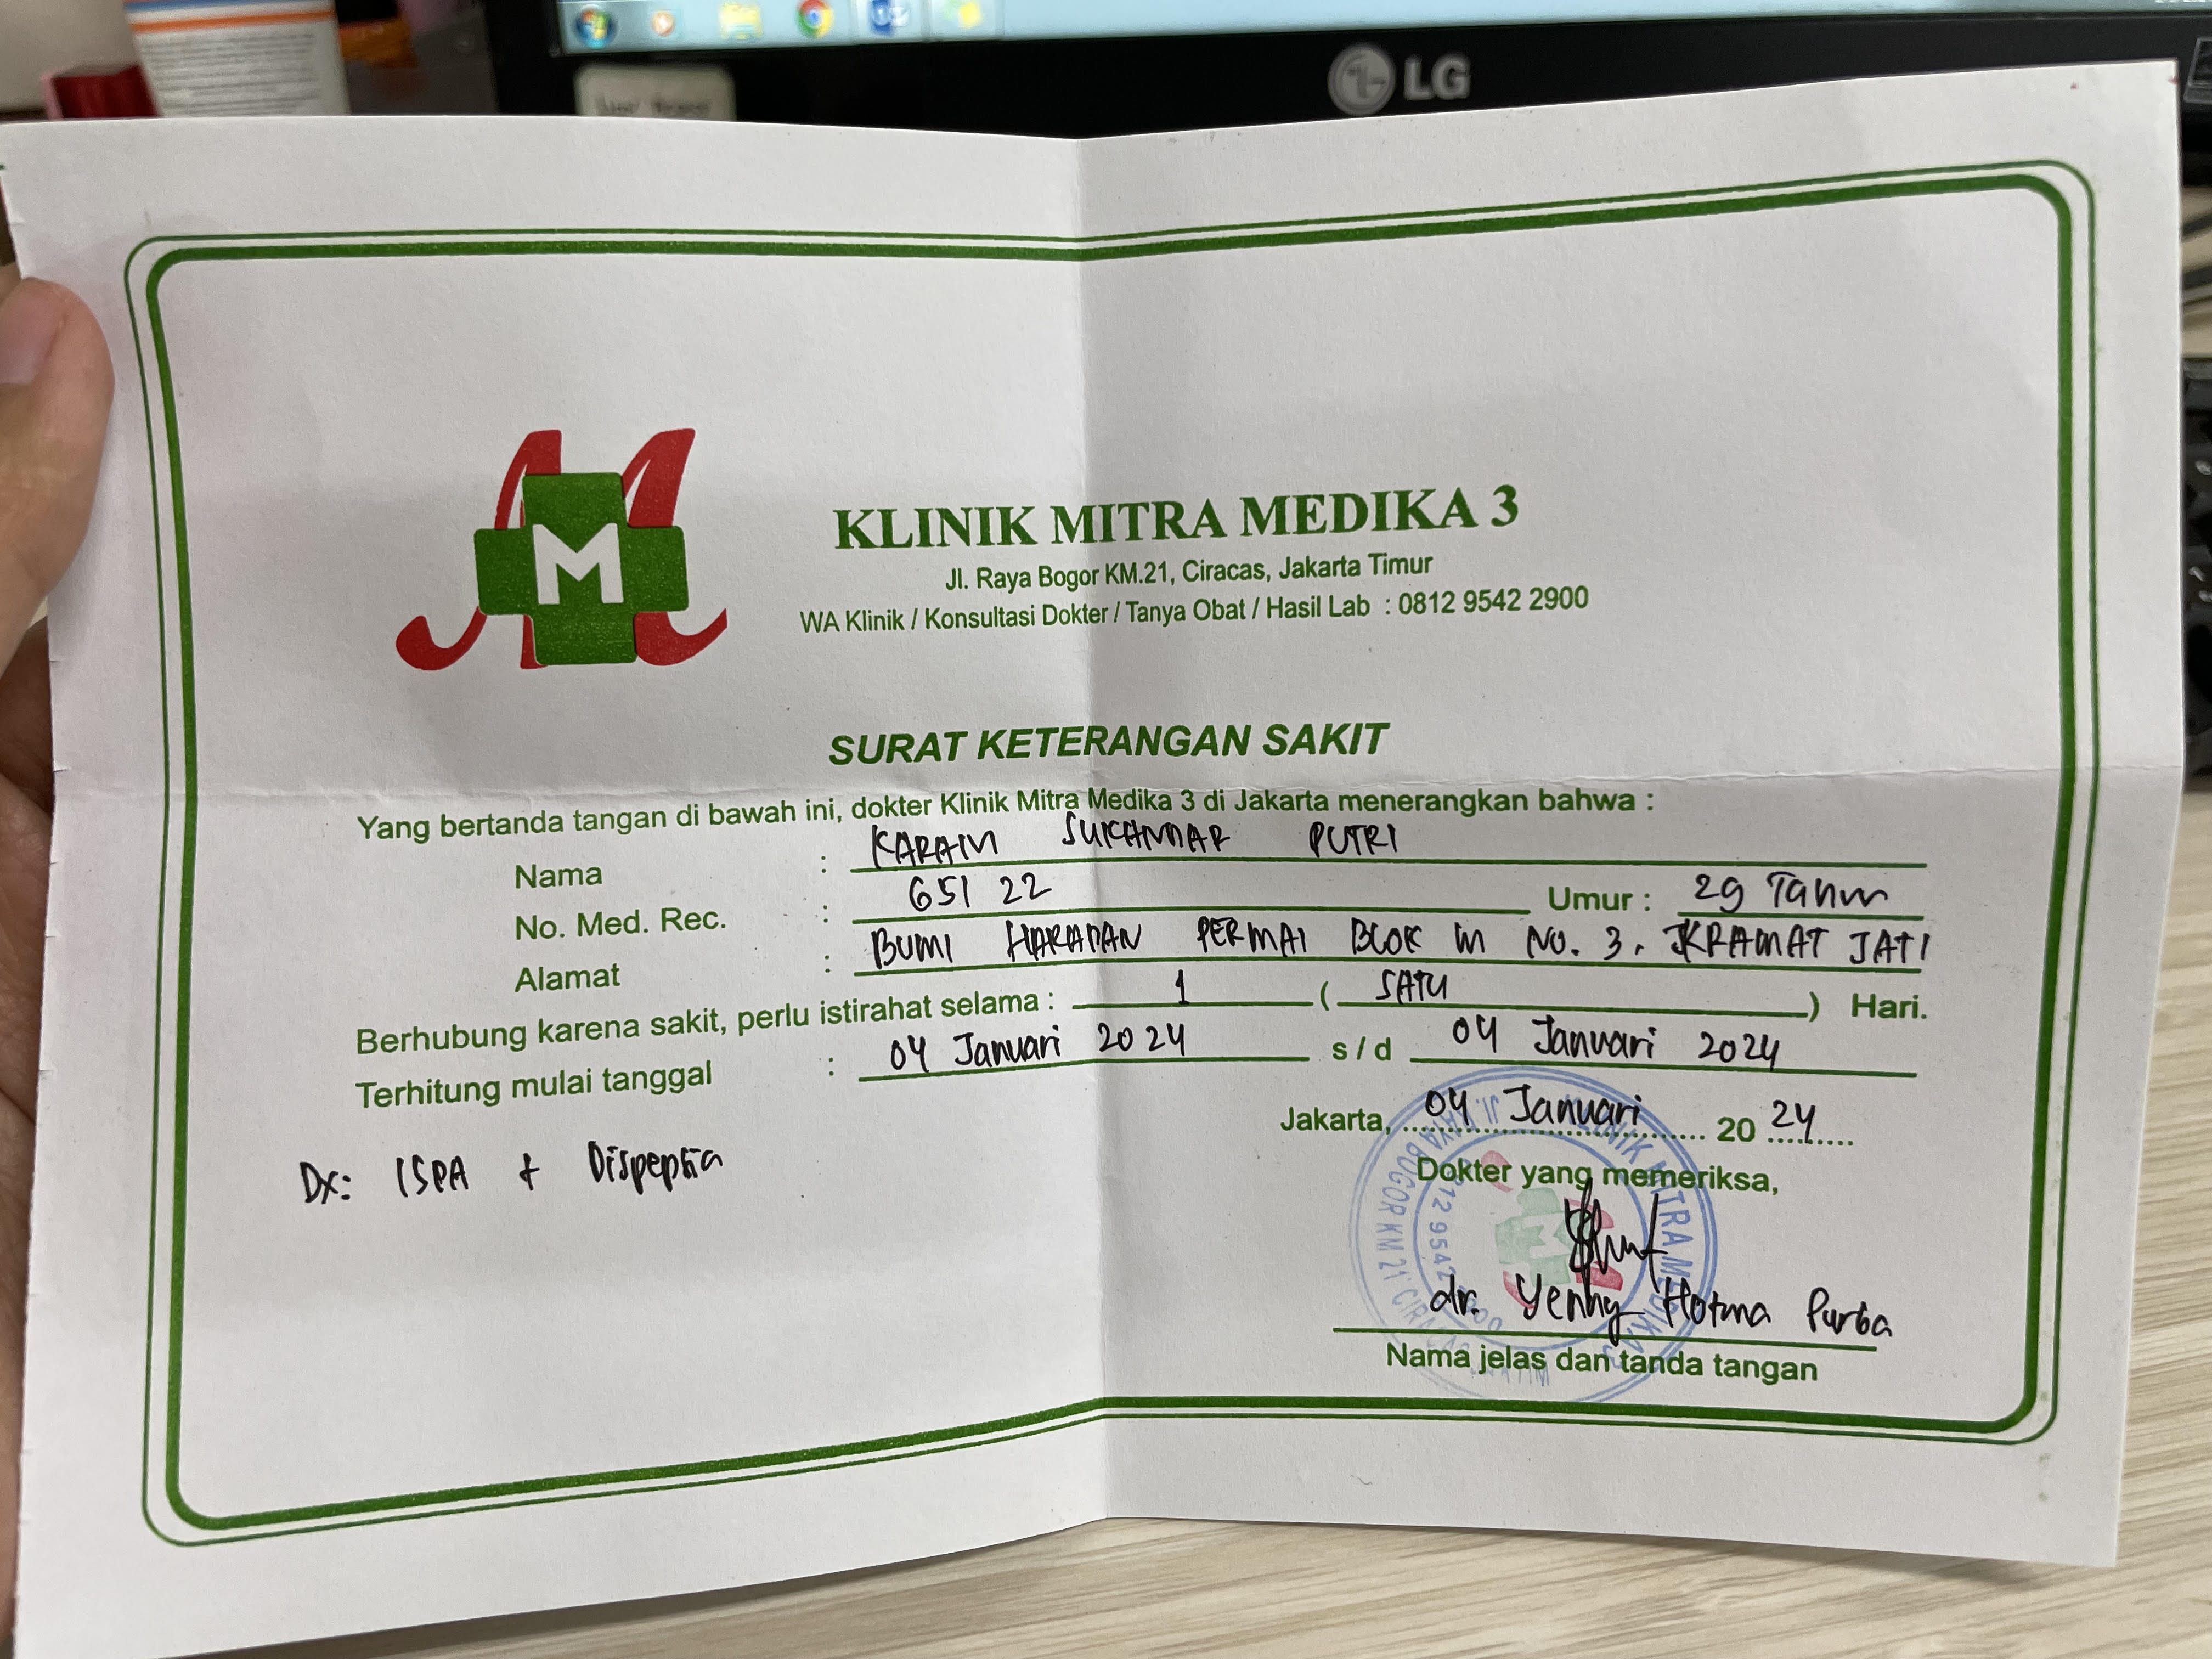 LG
M
KLINIK MITRA MEDIKA 3
Jl. Raya Bogor KM.21, Ciracas, Jakarta Timur
WA Klinik / Konsultasi Dokter / Tanya Obat / Hasil Lab : 0812 9542 2900
SURAT KETERANGAN SAKIT
Yang bertanda tangan di bawah ini, dokter Klinik Mitra Medika 3 di Jakarta menerangkan bahwa :
Nama : KARAIN SUKANDAR PUTRI
No. Med. Rec. : 651 22 Umur : 29 Tahun
Alamat : BUMI HARAPAN PERMAI BLOK M NO. 3. KRAMAT JATI
Berhubung karena sakit, perlu istirahat selama : 1 ( SATU ) Hari.
Terhitung mulai tanggal : 04 Januari 2024 s/d 04 Januari 2024
Jakarta, 04 Januari 2024
Dx: ISPA + Dispepsia
Dokter yang memeriksa,
dr. Yenny Hotma Purba
Nama jelas dan tanda tangan